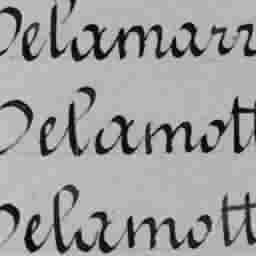 Delamarr
Delamott
Delamott